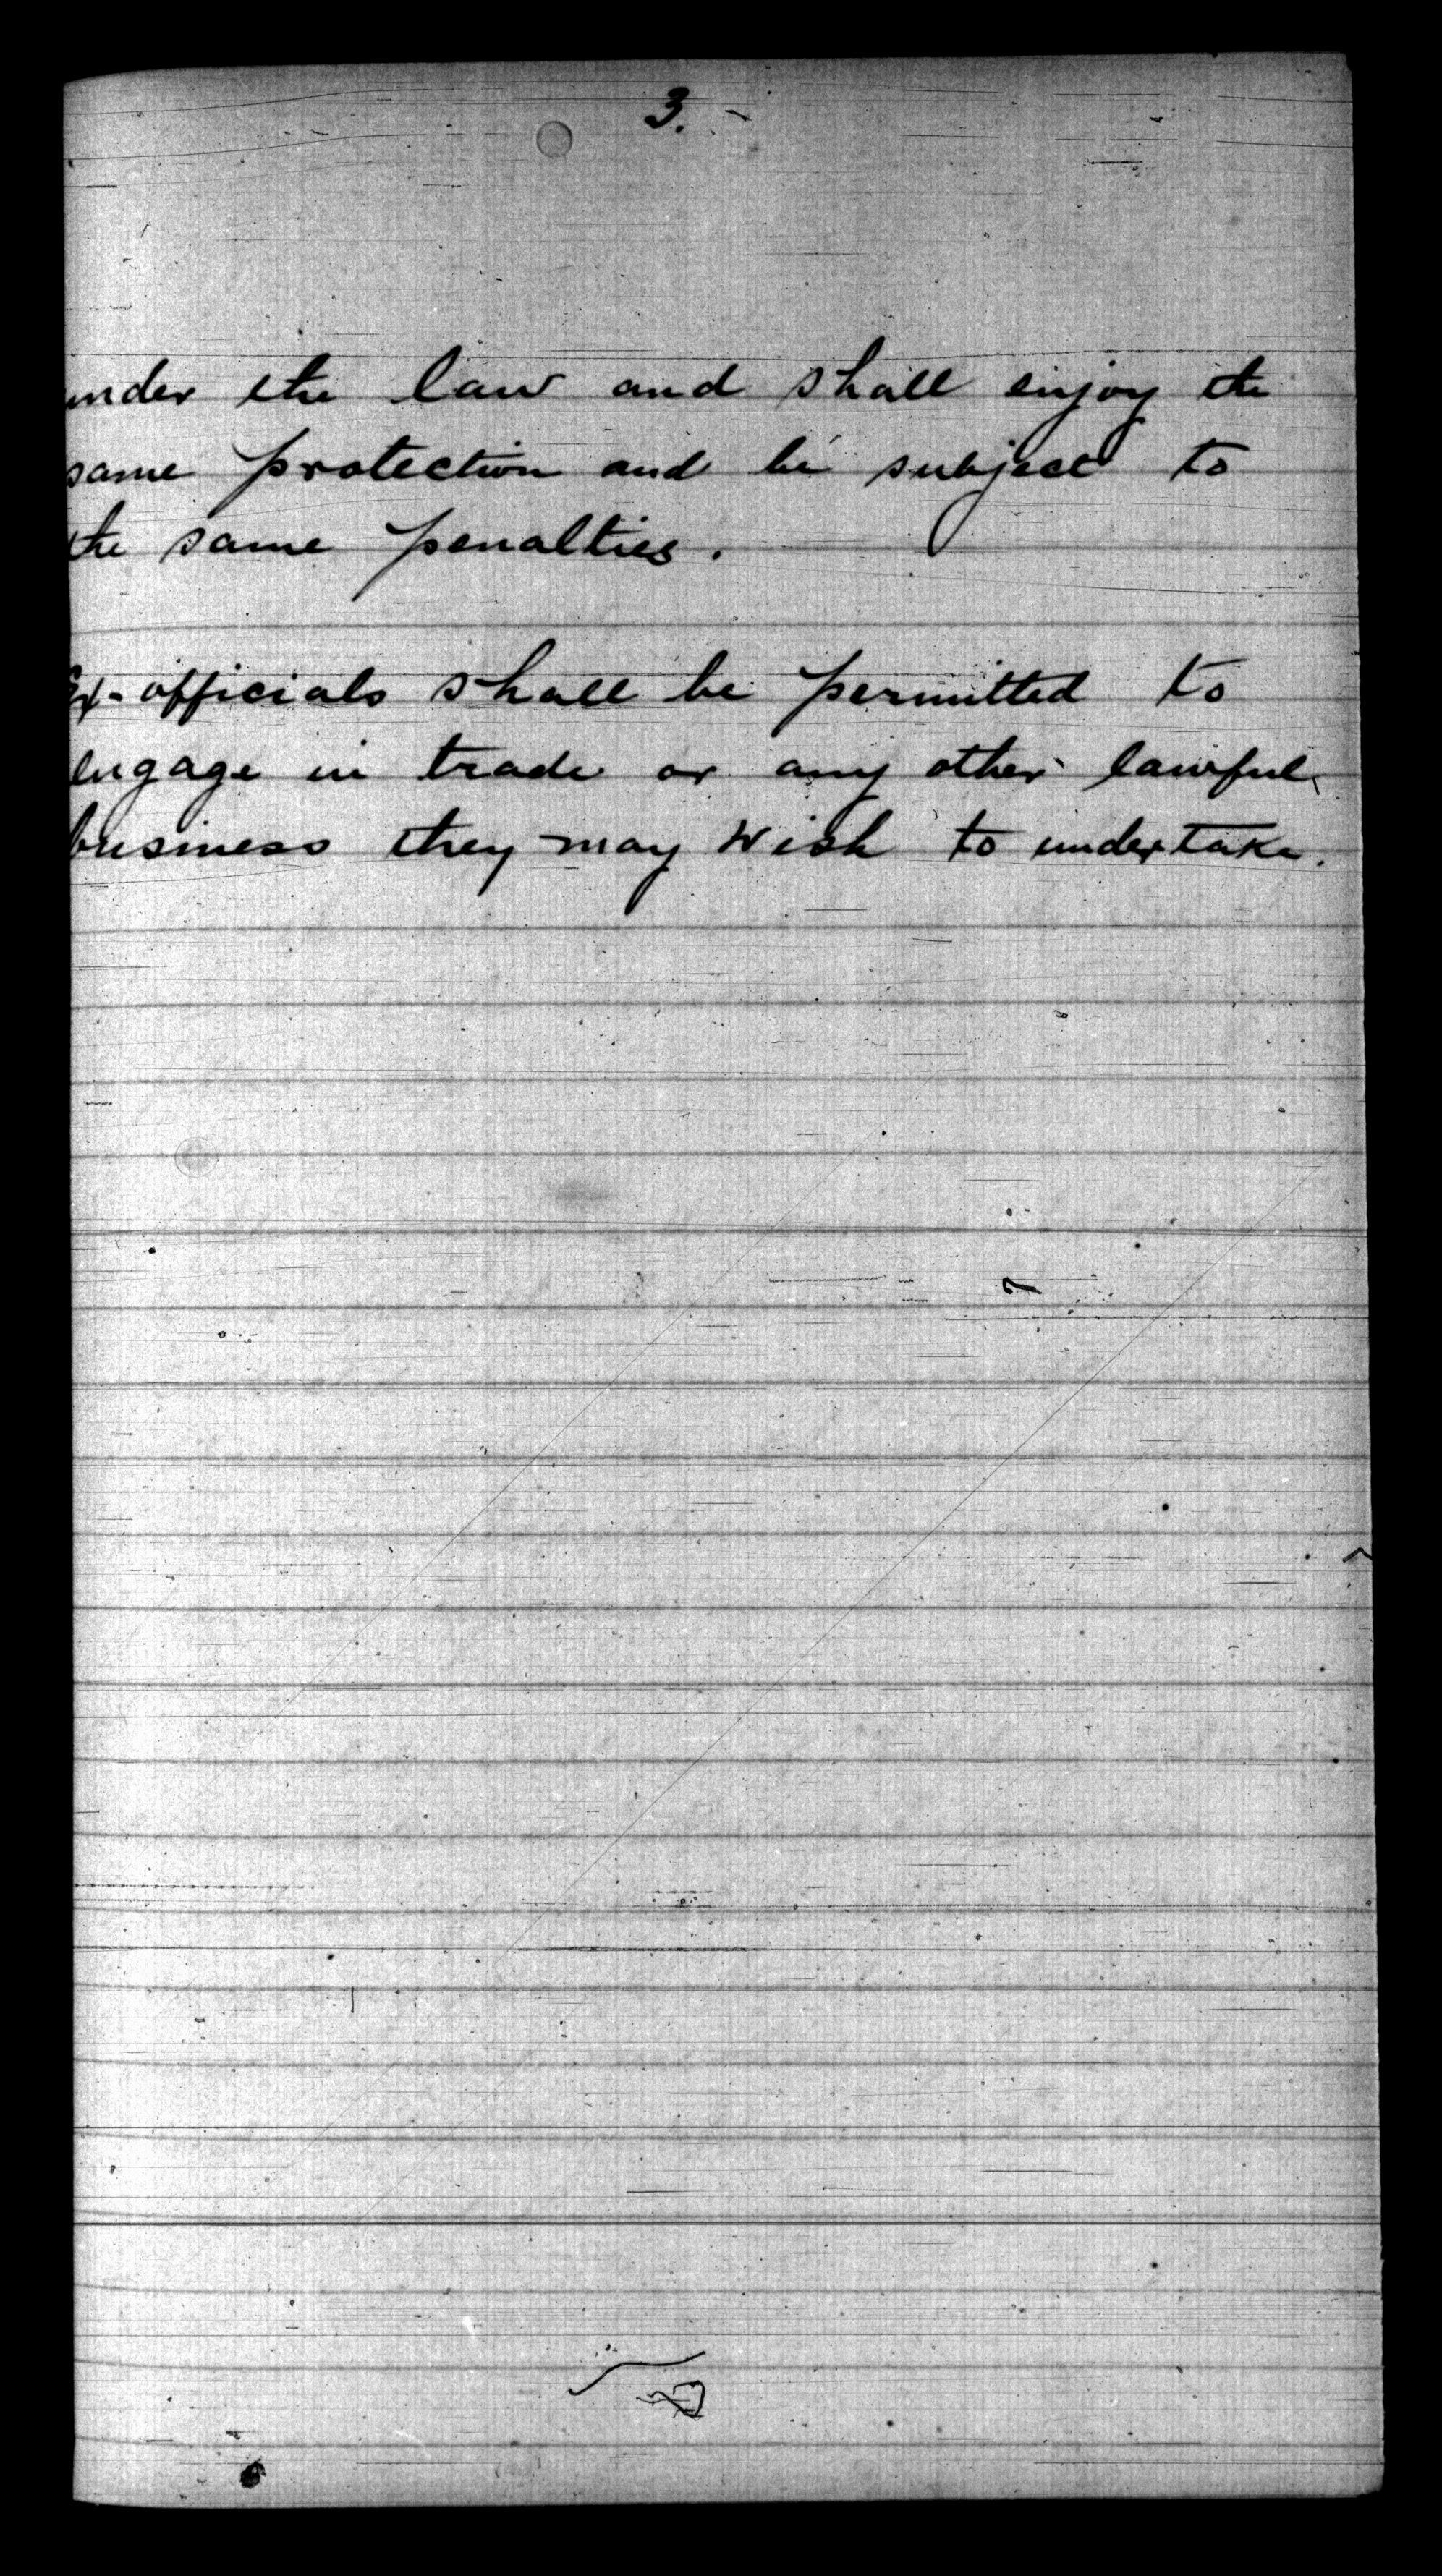 3.
under the law and shall enjoy the
same protection and be subject to
the same penalties.
Ex-officials shall be permitted to
engage in trade or any other lawful
business they may wish to undertake.